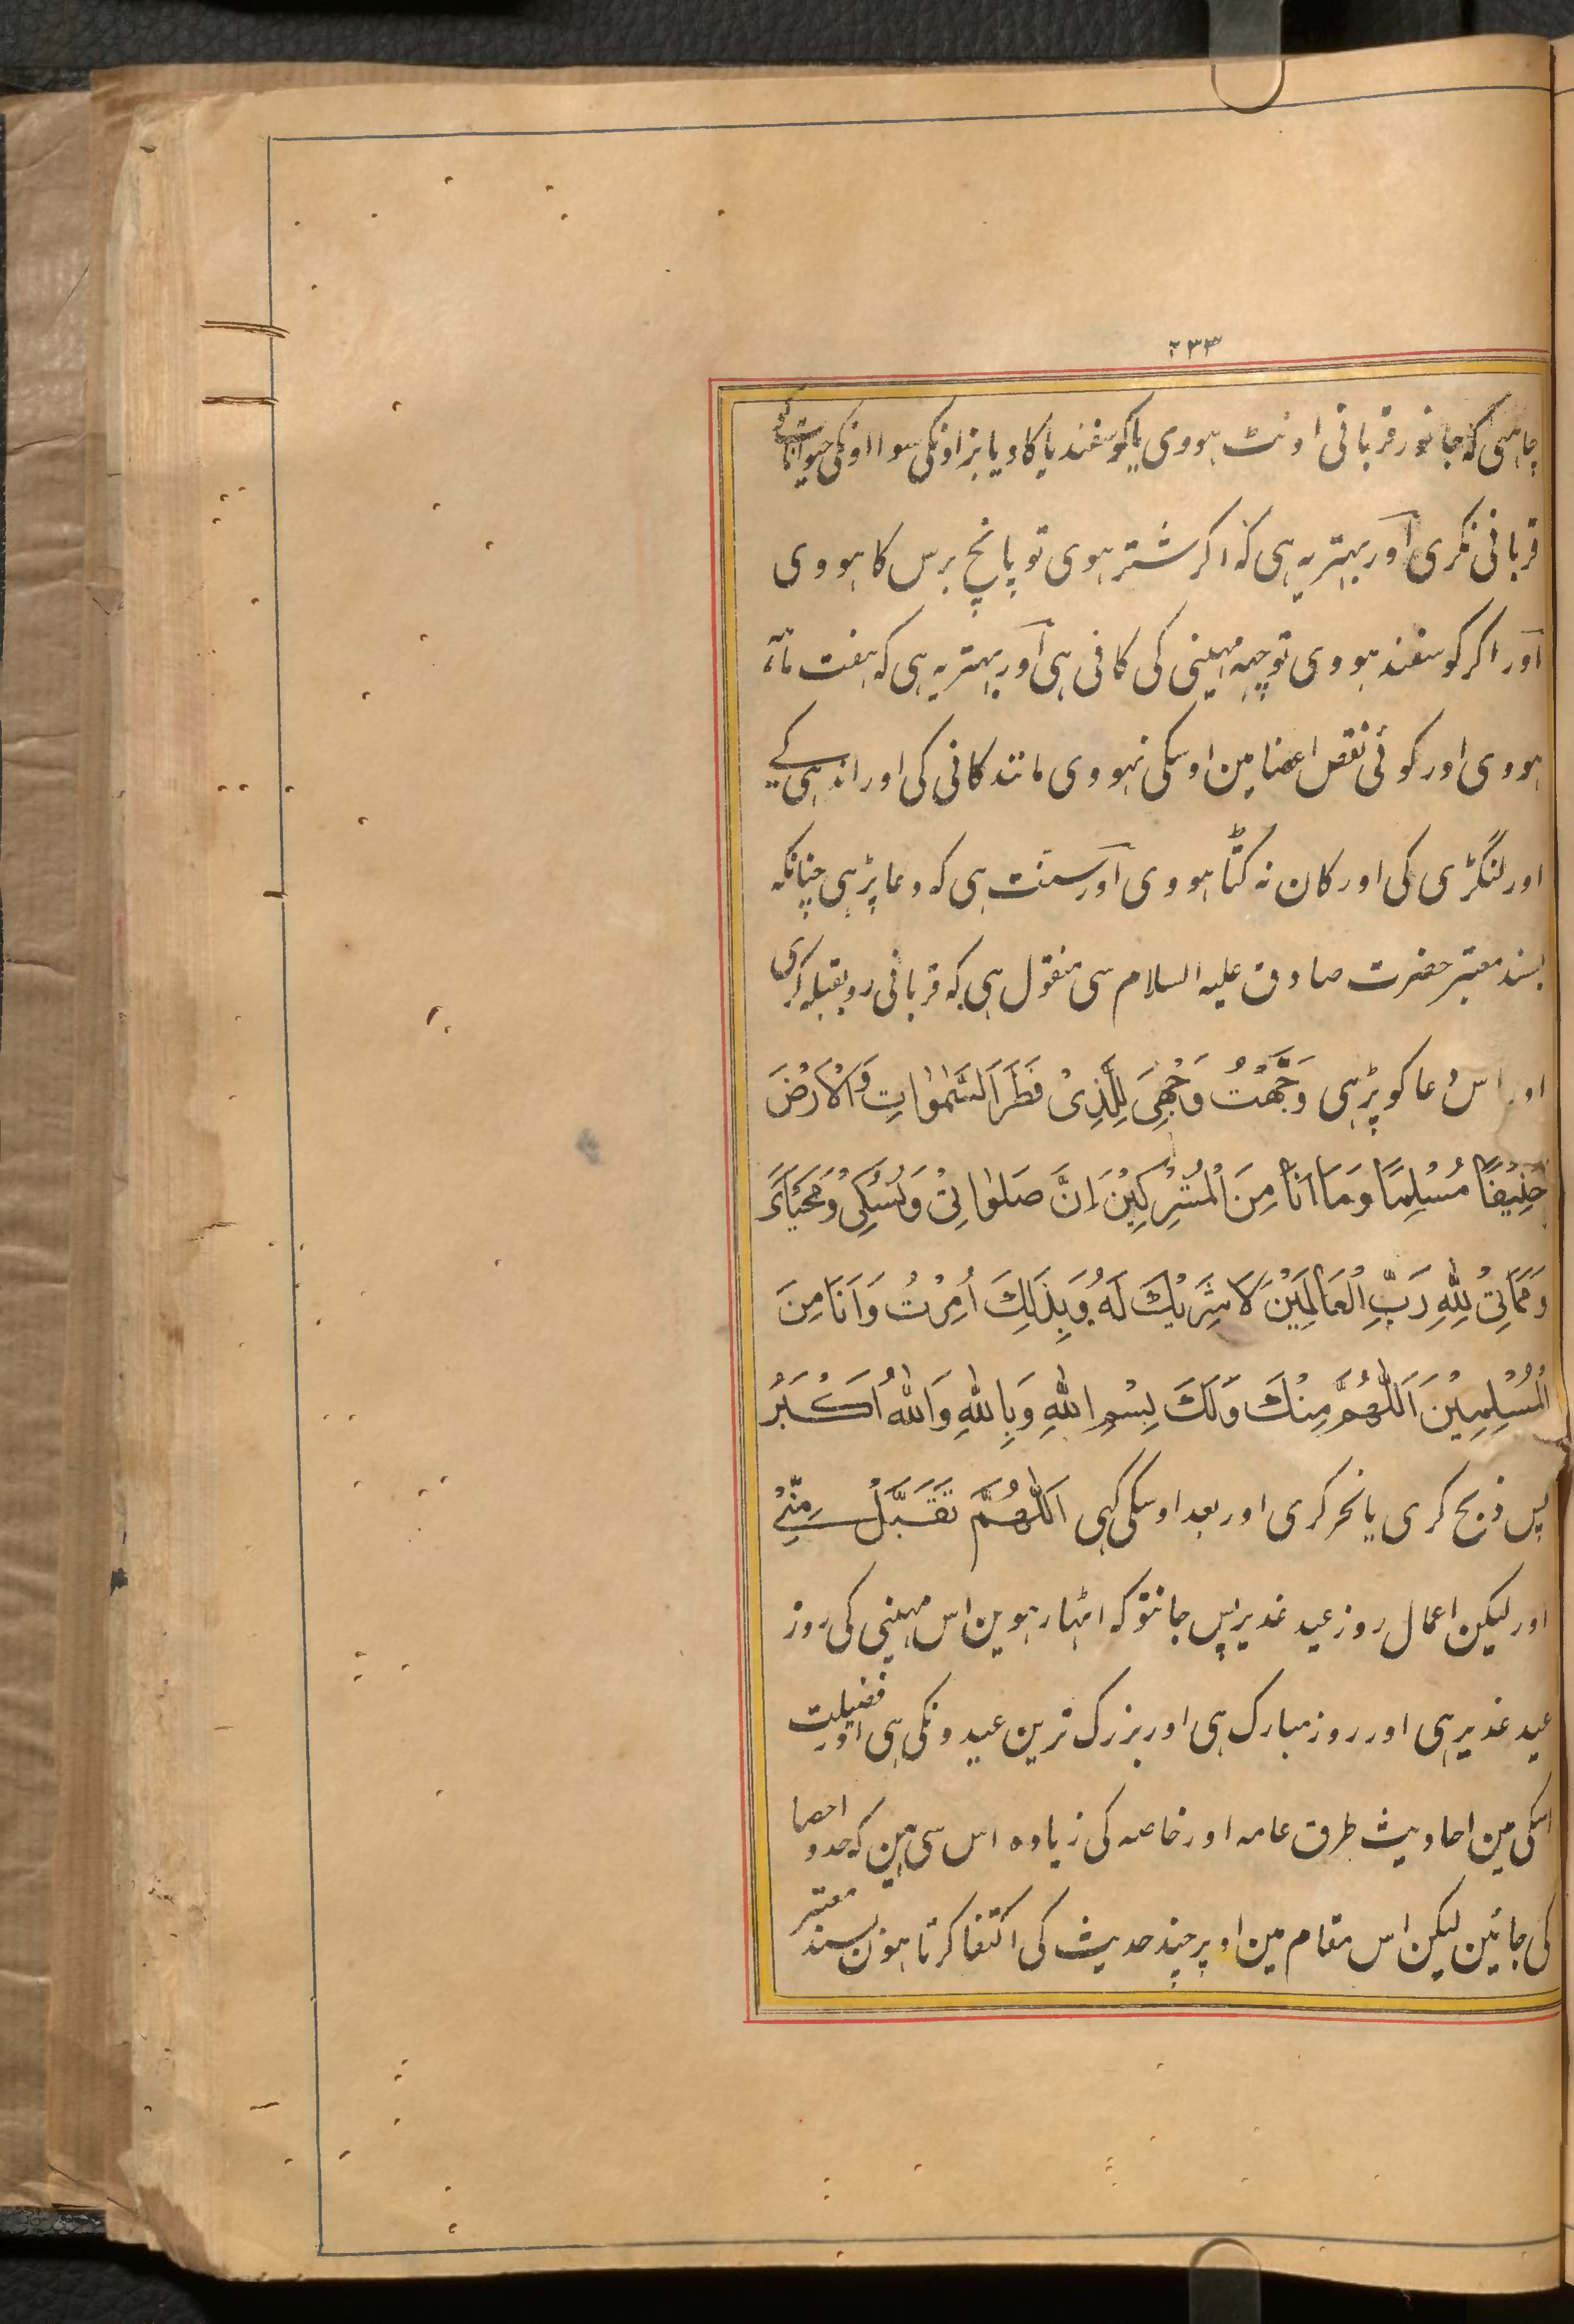 ۲۳۳
چاہئی کہ جانور قربانی اونٹ ہووی یا کوسفند یا کاو یا بز اونکی سوا اونکی حیوانات کی
قربانی نکری اور بہتر یہ ہی کہ اکر شتر ہوی تو پانچ برس کا ہووی
اور اکر کوسفند ہووی تو چہہ مہینی کی کافی ہی اور بہتر یہ ہی کہ ہفت ماہ
ہووی اور کوئی نقص اعضا مین اوسکی نہووی مانند کانی کی اور اندہی کے
اور لنگڑی کی اور کان نہ کٹا ہووی اور سنت ہی کہ دعا پڑہی چنانکہ
بسند معتبر حضرت صادق علیہ السلام سی منقول ہی کہ قربانی رو بقبلہ کری
اور اس دعا کو پڑہی وَجَّهْتُ وَجْهِیَ لِلَّذِیْ فَطَرَ السَّمٰوٰاتِ وَالْاَرْضَ
حَنِیْفًا مُسْلِمًا وَمَا اَنَا مِنَ الْمُشْرِکِیْنَ اِنَّ صَلٰوٰتِیْ وَنُسُکِیْ وَمَحْیَایَ
وَمَمَاتِیْ لِلّٰهِ رَبِّ الْعَالَمِیْنَ لَا شَرِیْكَ لَهُ وَبِذَلِكَ اُمِرْتُ وَاَنَا مِنَ
الْمُسْلِمِیْنَ اَللّٰهُمَّ مِنْكَ وَلَكَ بِسْمِ اللّٰهِ وَبِاللّٰهِ وَاللّٰهُ اَکْبَرُ
پس ذبح کری یا نحر کری اور بعد اوسکی کہی اَللّٰهُمَّ تَقَبَّلْ مِنِّیْ
اور لیکن اعمال روز عید غدیر پس جانتو کہ اٹہارہوین اس مہینی کی روز
عید غدیر ہی اور روز مبارک ہی اور بزرک ترین عیدونکی ہی اور فضیلت
اسکی مین احادیث طرق عامہ اور خاصہ کی زیادہ اس سی ہین کہ حد و احصا
کی جائین لیکن اس مقام مین اوپر چند حدیث کی اکتفا کرتا ہون بسند معتبر